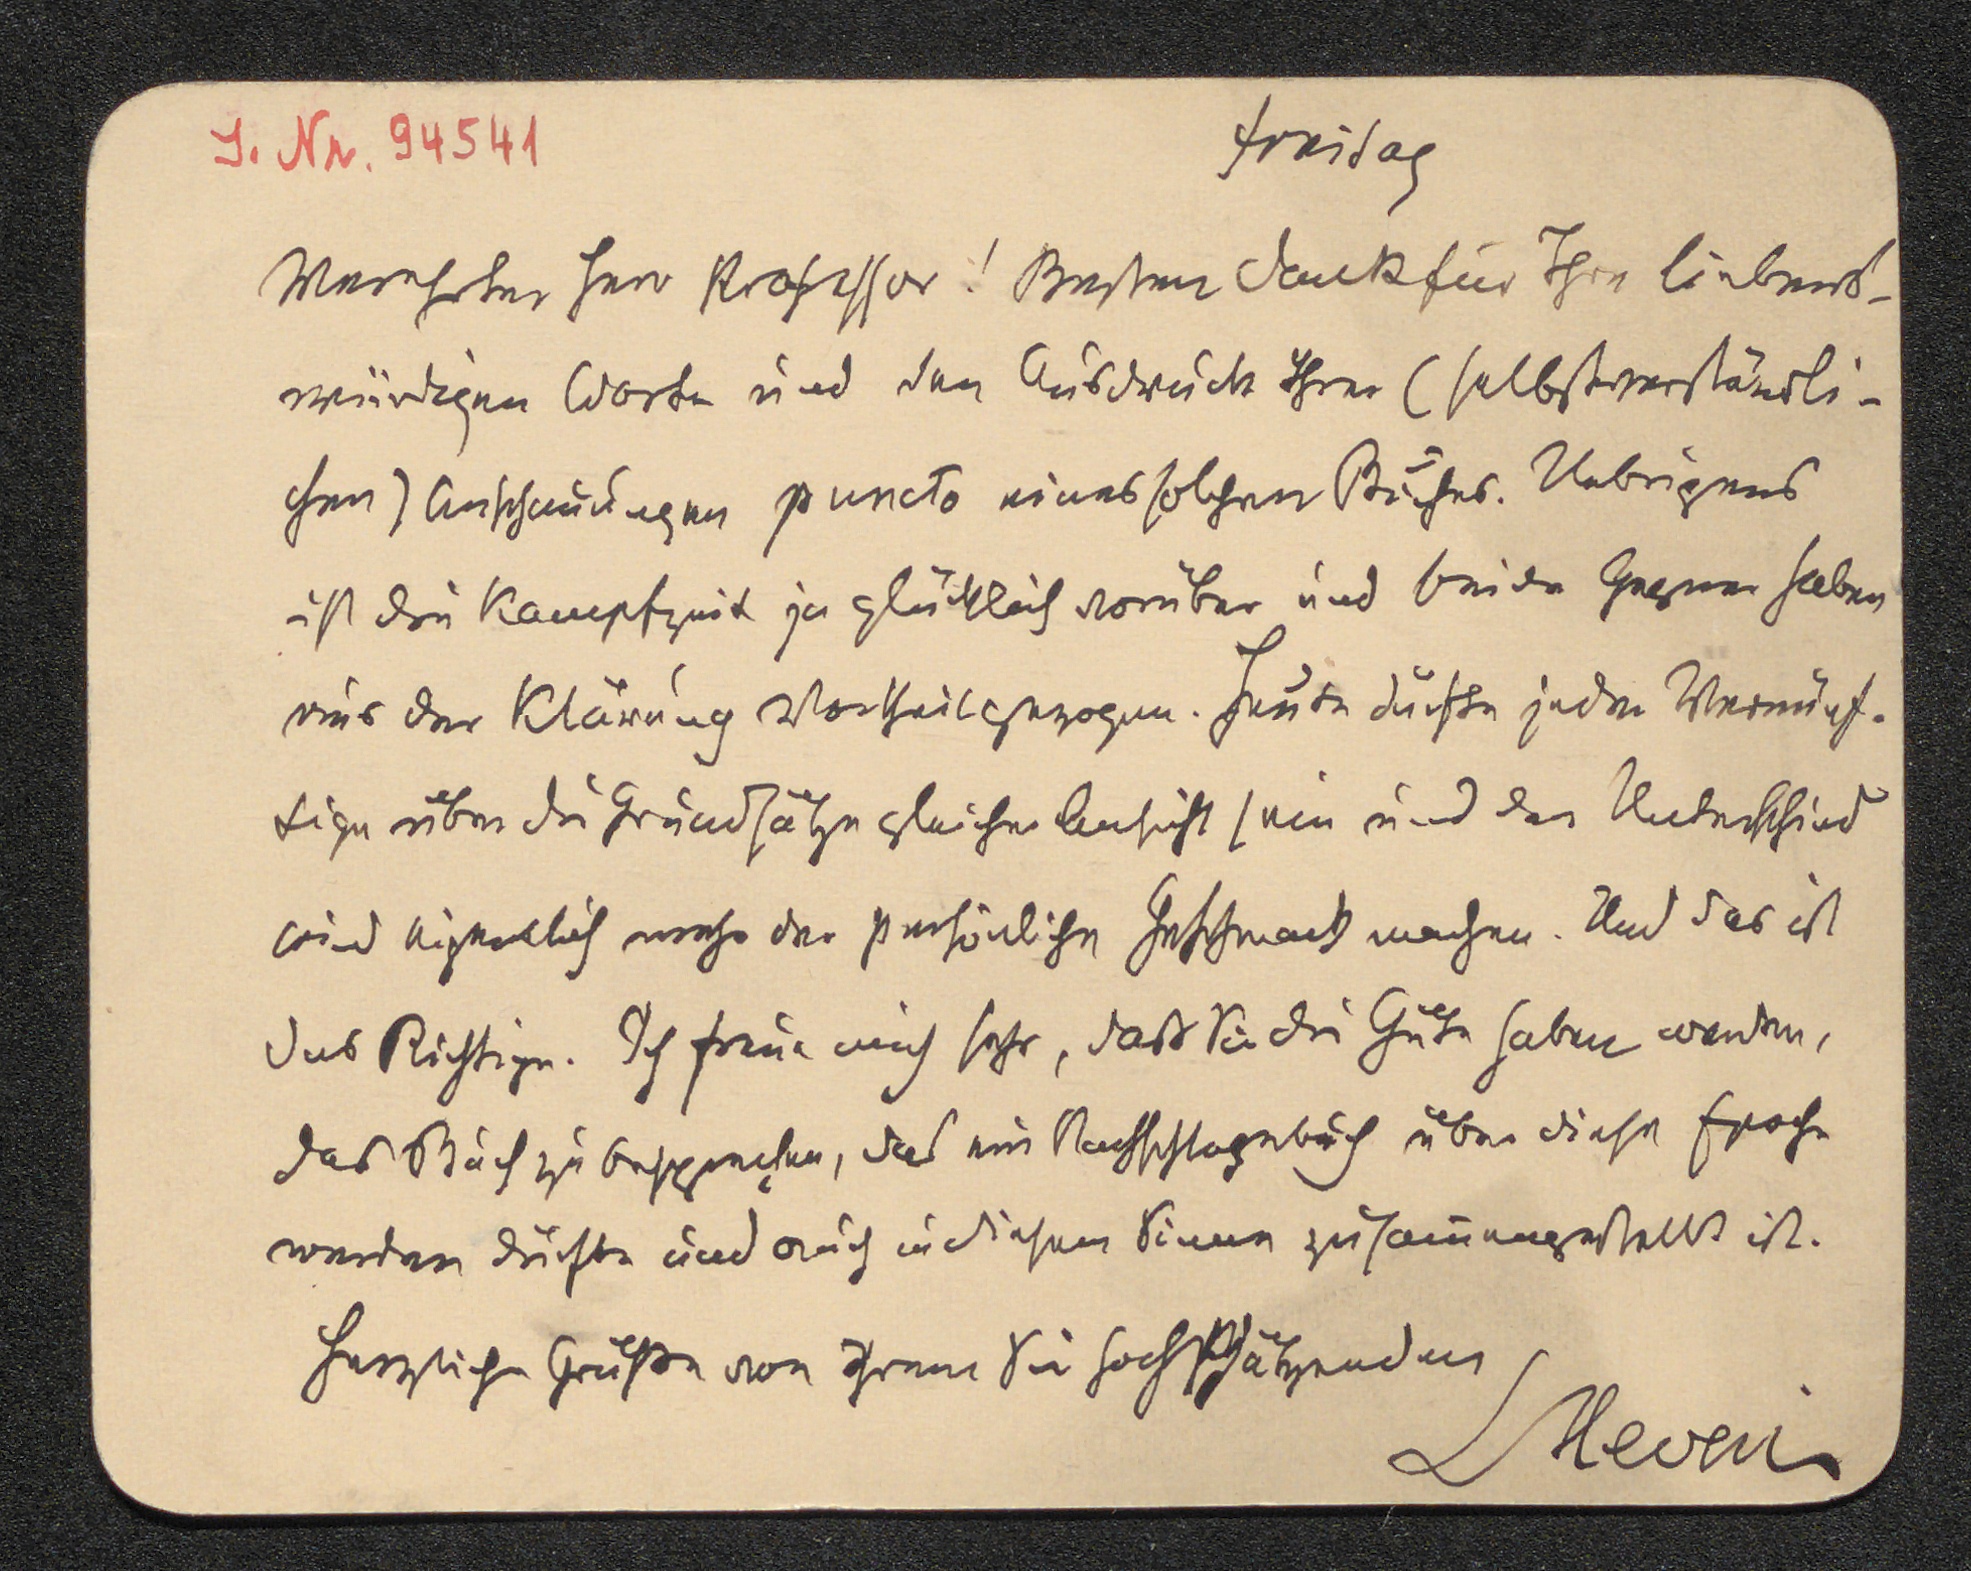 J. Nr. 94541
Freitag
Verehrter Herr Professor! Besten Dank für Ihre liebens-
würdigen Worte und den Ausdruck Ihrer (selbstverständli-
chen) Anschauungen puncto eines solchen Buches. Uebrigens
ist die Kampfzeit ja glücklich vorüber und beide Gegner haben
aus der Klärung Vortheil gezogen. Heute dürfte jeder Vernünf-
tige über die Grundsätze gleicher Ansicht sein und den Unterschied
wird eigentlich mehr der persönliche Geschmack machen. Und das ist
das Richtige. Ich freue mich sehr, dass Sie die Güte haben werden,
das Buch zu besprechen, das ein Nachschlagebuch über diese Epoche
werden dürfte und auch in diesem Sinne zusammengestellt ist.
Herzliche Grüße von Ihrem Sie hochschätzenden
L Hevesi